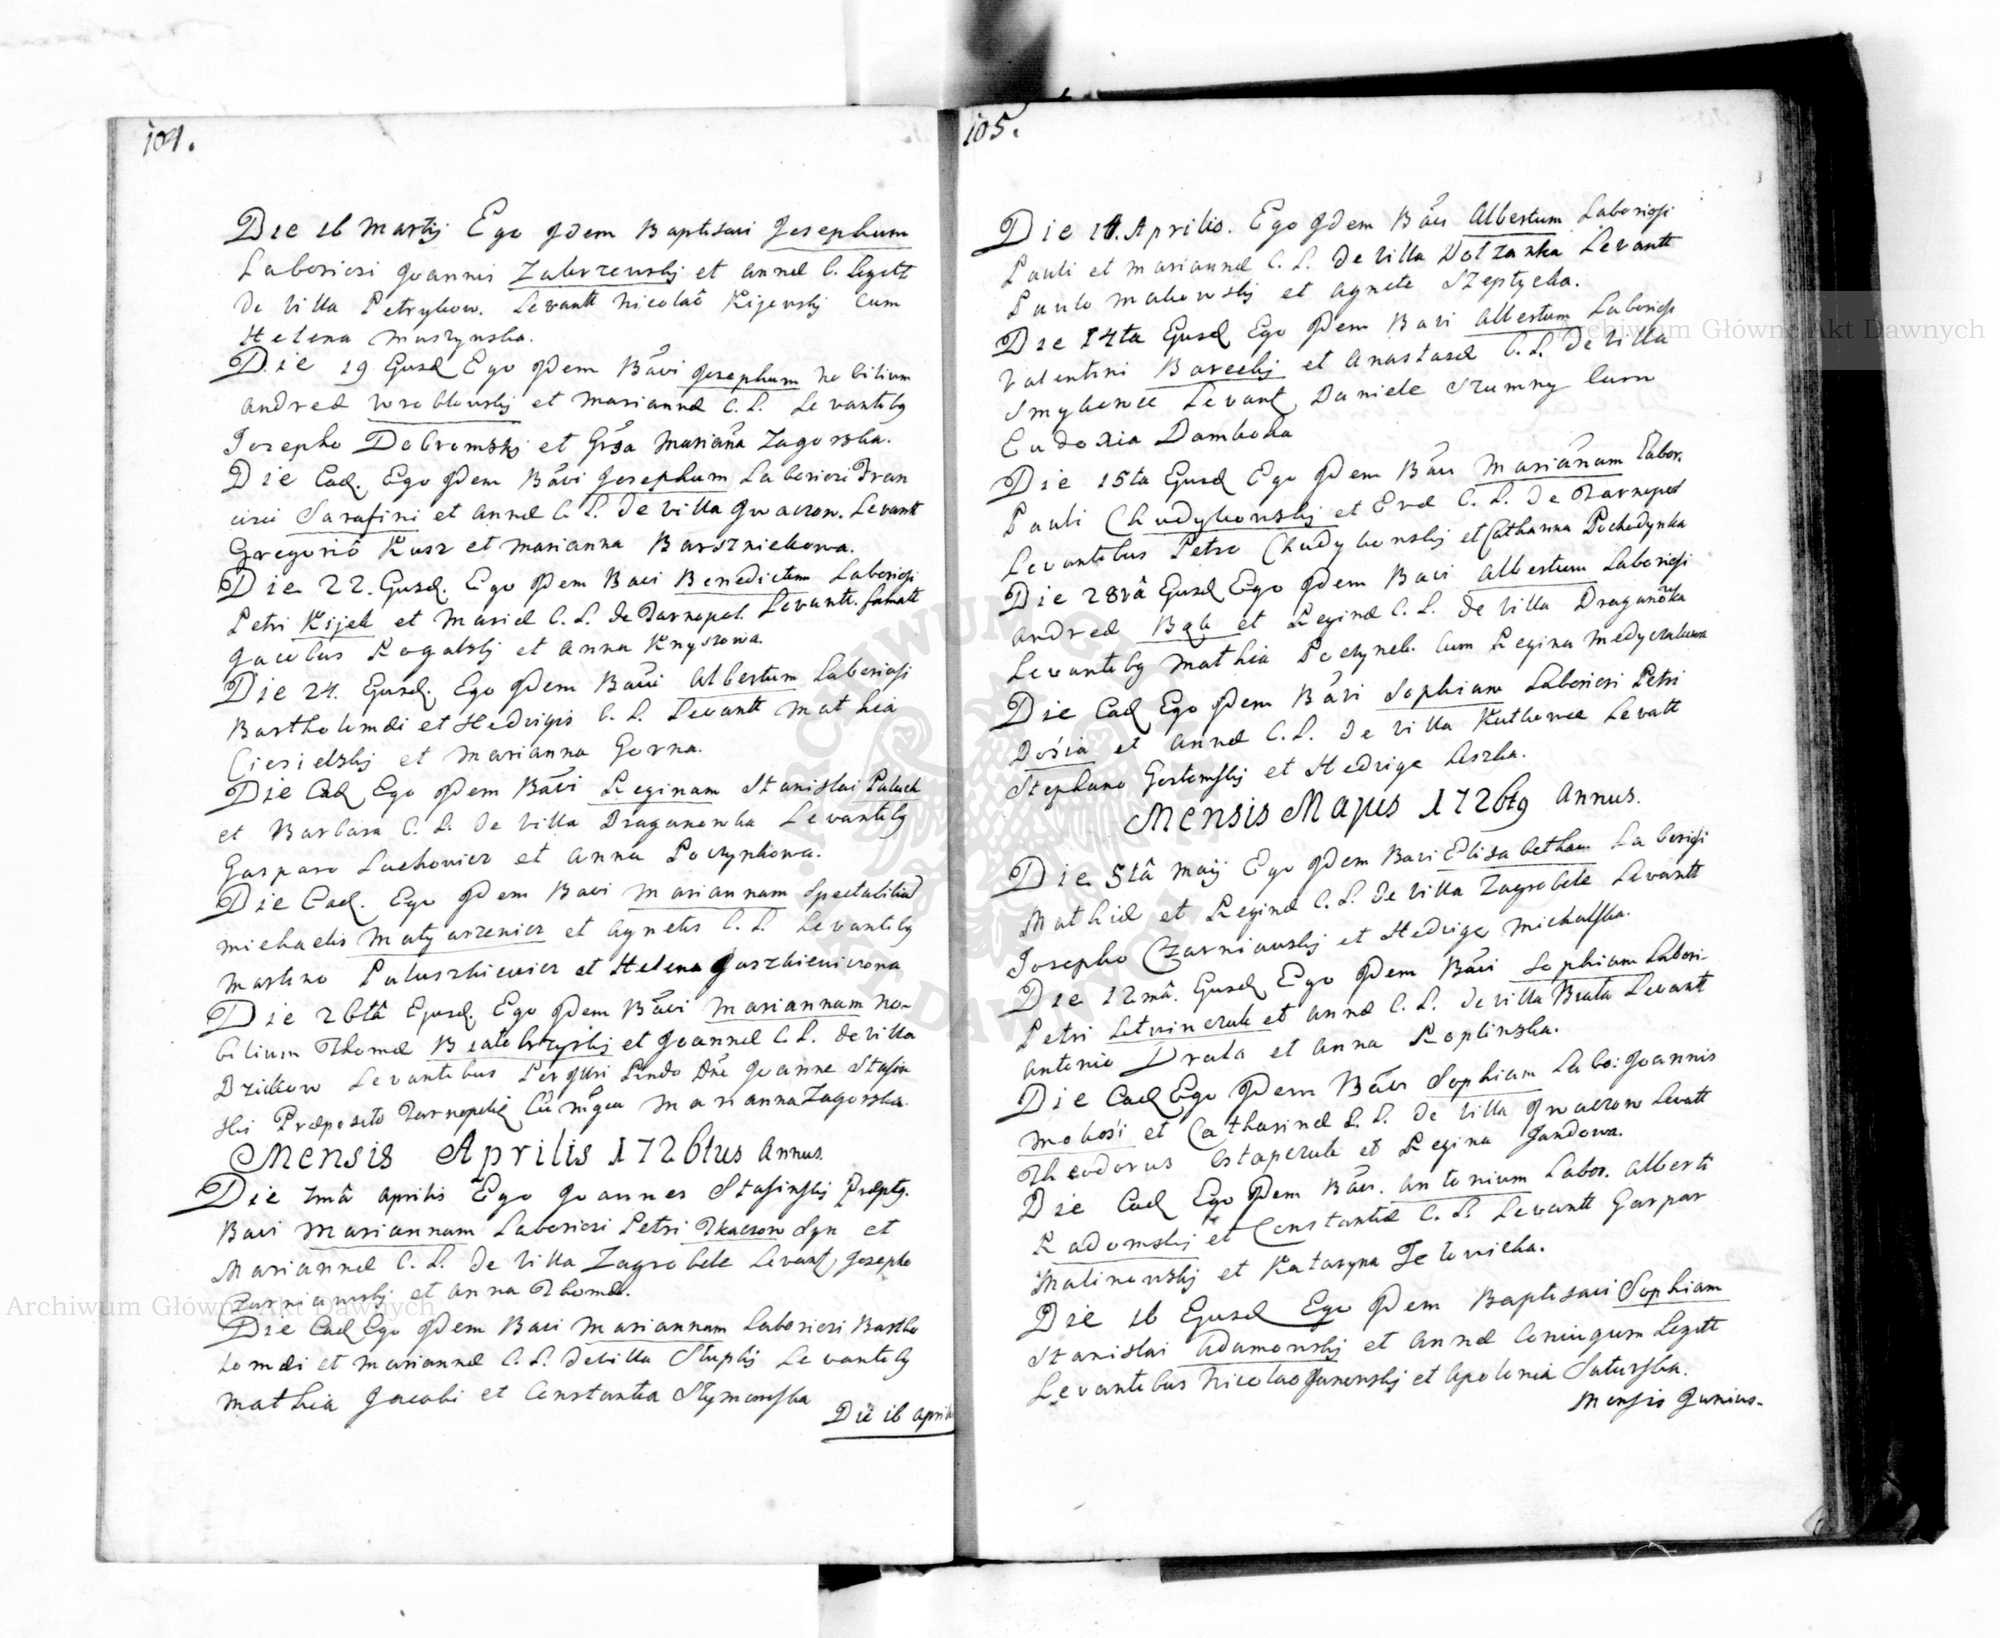 104.
Die 16 Martij Ego Idem Baptisavi Josephum
Laboriosi Joannis Zaborzewskij et Annæ C. Legitt
De Villa Petrykow. Levantt Nicolao Kijowskij cum
Helena Muszynska.
Die 19 Eusd Ego Idem Bavi Josephum Nobilium
Andreæ Wroblewskij et Mariannæ C. L. Levantibg
Josepho Dobromskij et Grsa Mariana Zagorska.
Die Ead. Ego Idem Bavi Josephum Laboriosi Fran
cisci Sarafini et Annæ C. L. de Villa Iwaczow. Levantt
Gregorio Kusz et Marianna Barszniekowa.
Die 22. Eusd. Ego Idem Bavi Benedictum Laboriosi
Petri Kijek et Mariæ C. L. de Tarnopol. Levantt. famatt
Jacobus Rogalskij et Anna Knyszowa.
Die 24. Eusd. Ego Idem Bavi Albertum Laboriosi
Bartholomæi et Hedvigis C. L. Levantt Mathia
Ciesielskij et Marianna Gorna.
Die Ead Ego Idem Bavi Reginam Stanislai Paluch
et Barbara C. L. de Villa Draganowka Levantibg
Gasparo Lachowicz et Anna Poczynkowa.
Die Ead. Ego Idem Bavi Mariannam Spectabiliu
Michaelis Matyaszewicz et Agnetis C. L. Levantibg
Martino Paluszkiewicz et Helena Juszkiewiczowa
Die 26tâ Ejusd. Ego Idem Bavi Mariannam No-
bilium Thomæ Białobrzyskij et Joannæ C. L. de Villa
Dzickow Levantibus Per Illri Rndo Dno Joanne Stasin
ski Præposito Tarnopoliẽ Cũ Mgca Marianna Zagorska.
Mensis Aprilis 1726tus Annus.
Die 7mâ Aprilis Ego Joannes Stasinskij Præptg.
Bavi Mariannam Laboriosi Petri Tkaczow Syn et
Mariannæ C. L. de Villa Zagrobele Levant, Josepho
Czarniawskij et Anna Thomæ.
Die Ead Ego Idem Bavi Mariannam Laboriosi Bartho
lomæi et Mariannæ C. L. de Villa Stupkij Levantibg
Mathia Jacobi et Constantia Szymanska
Die 16 Aprilis
105.
Die 14. Aprilis. Ego Idem Bavi Albertum Laboriosi
Pauli et Mariannæ C. L. de Villa Dolzanka Levantt
Paulo Makowskij et Agnete Szeptycka.
Die 14ta Eusd Ego Idem Bavi Albertum Laboriosi
Valentini Bareckij et Anastasiæ C. L. de Villa
Smykowce Levant, Daniele Szumny Cum
Eudoxia Dambocka
Die 15ta Eusd Ego Idem Bavi Mariannam Labor.
Pauli Chudykowskij et Evæ C. L. de Tarnopol
Levantibus Petro Chudykowskij et Catharina Pochodynka
Die 28vâ Eusd Ego Idem Bavi Albertum Laboriosi
Andreæ Bąk et Reginæ C. L. de Villa Draganowka
Levantibg Mathia Poczynek. Cum Regina Medyczakowa
Die Ead Ego Idem Bavi Sophiam Laboriosi Petri
Dosia et Annæ C. L. de Villa Kutkowce Levatt
Stephano Gostomskij et Hedvige Leszka.
Mensis Majus 1726tg Annus.
Die 5tâ Maij Ego Idem Bavi Elisabetham Laboriosi
Mathiæ et Reginæ C. L. de Villa Zagrobele Levantt
Josepho Czarniawskij et Hedvige Michalska.
Die 12mâ. Eusd Ego Idem Bavi Sophiam Labori-
Petri Litwinczuk et Annæ C. L. de Villa Biała Levantt
Antonio Drala et Anna Koplinska.
Die Ead Ego Idem Bavi Sophiam Labo: Joannis
Mokosi et Catharinæ C. L. de Villa Iwaczow Levatt
Theodorus Ostapczuk et Regina Jandowa.
Die Ead Ego Idem Bavi. Antonium Labor. Alberti
Radomskij et Constantiæ C. L. Levantt Gaspar
Malinowskij et Katarzyna Telowicka.
Die 16 Eusd Ego Idem Baptisavi Sophiam
Stanislai Adamowskij et Annæ Coniugum Legitt
Levantibus Nicolao Janowskij et Apolonia Saturska.
Mensis Junius.
Archiwum Główne Akt Dawnych
Archiwum Główne Akt Dawnych
ARCHIWUM GŁÓWNE AKT DAWNYCH